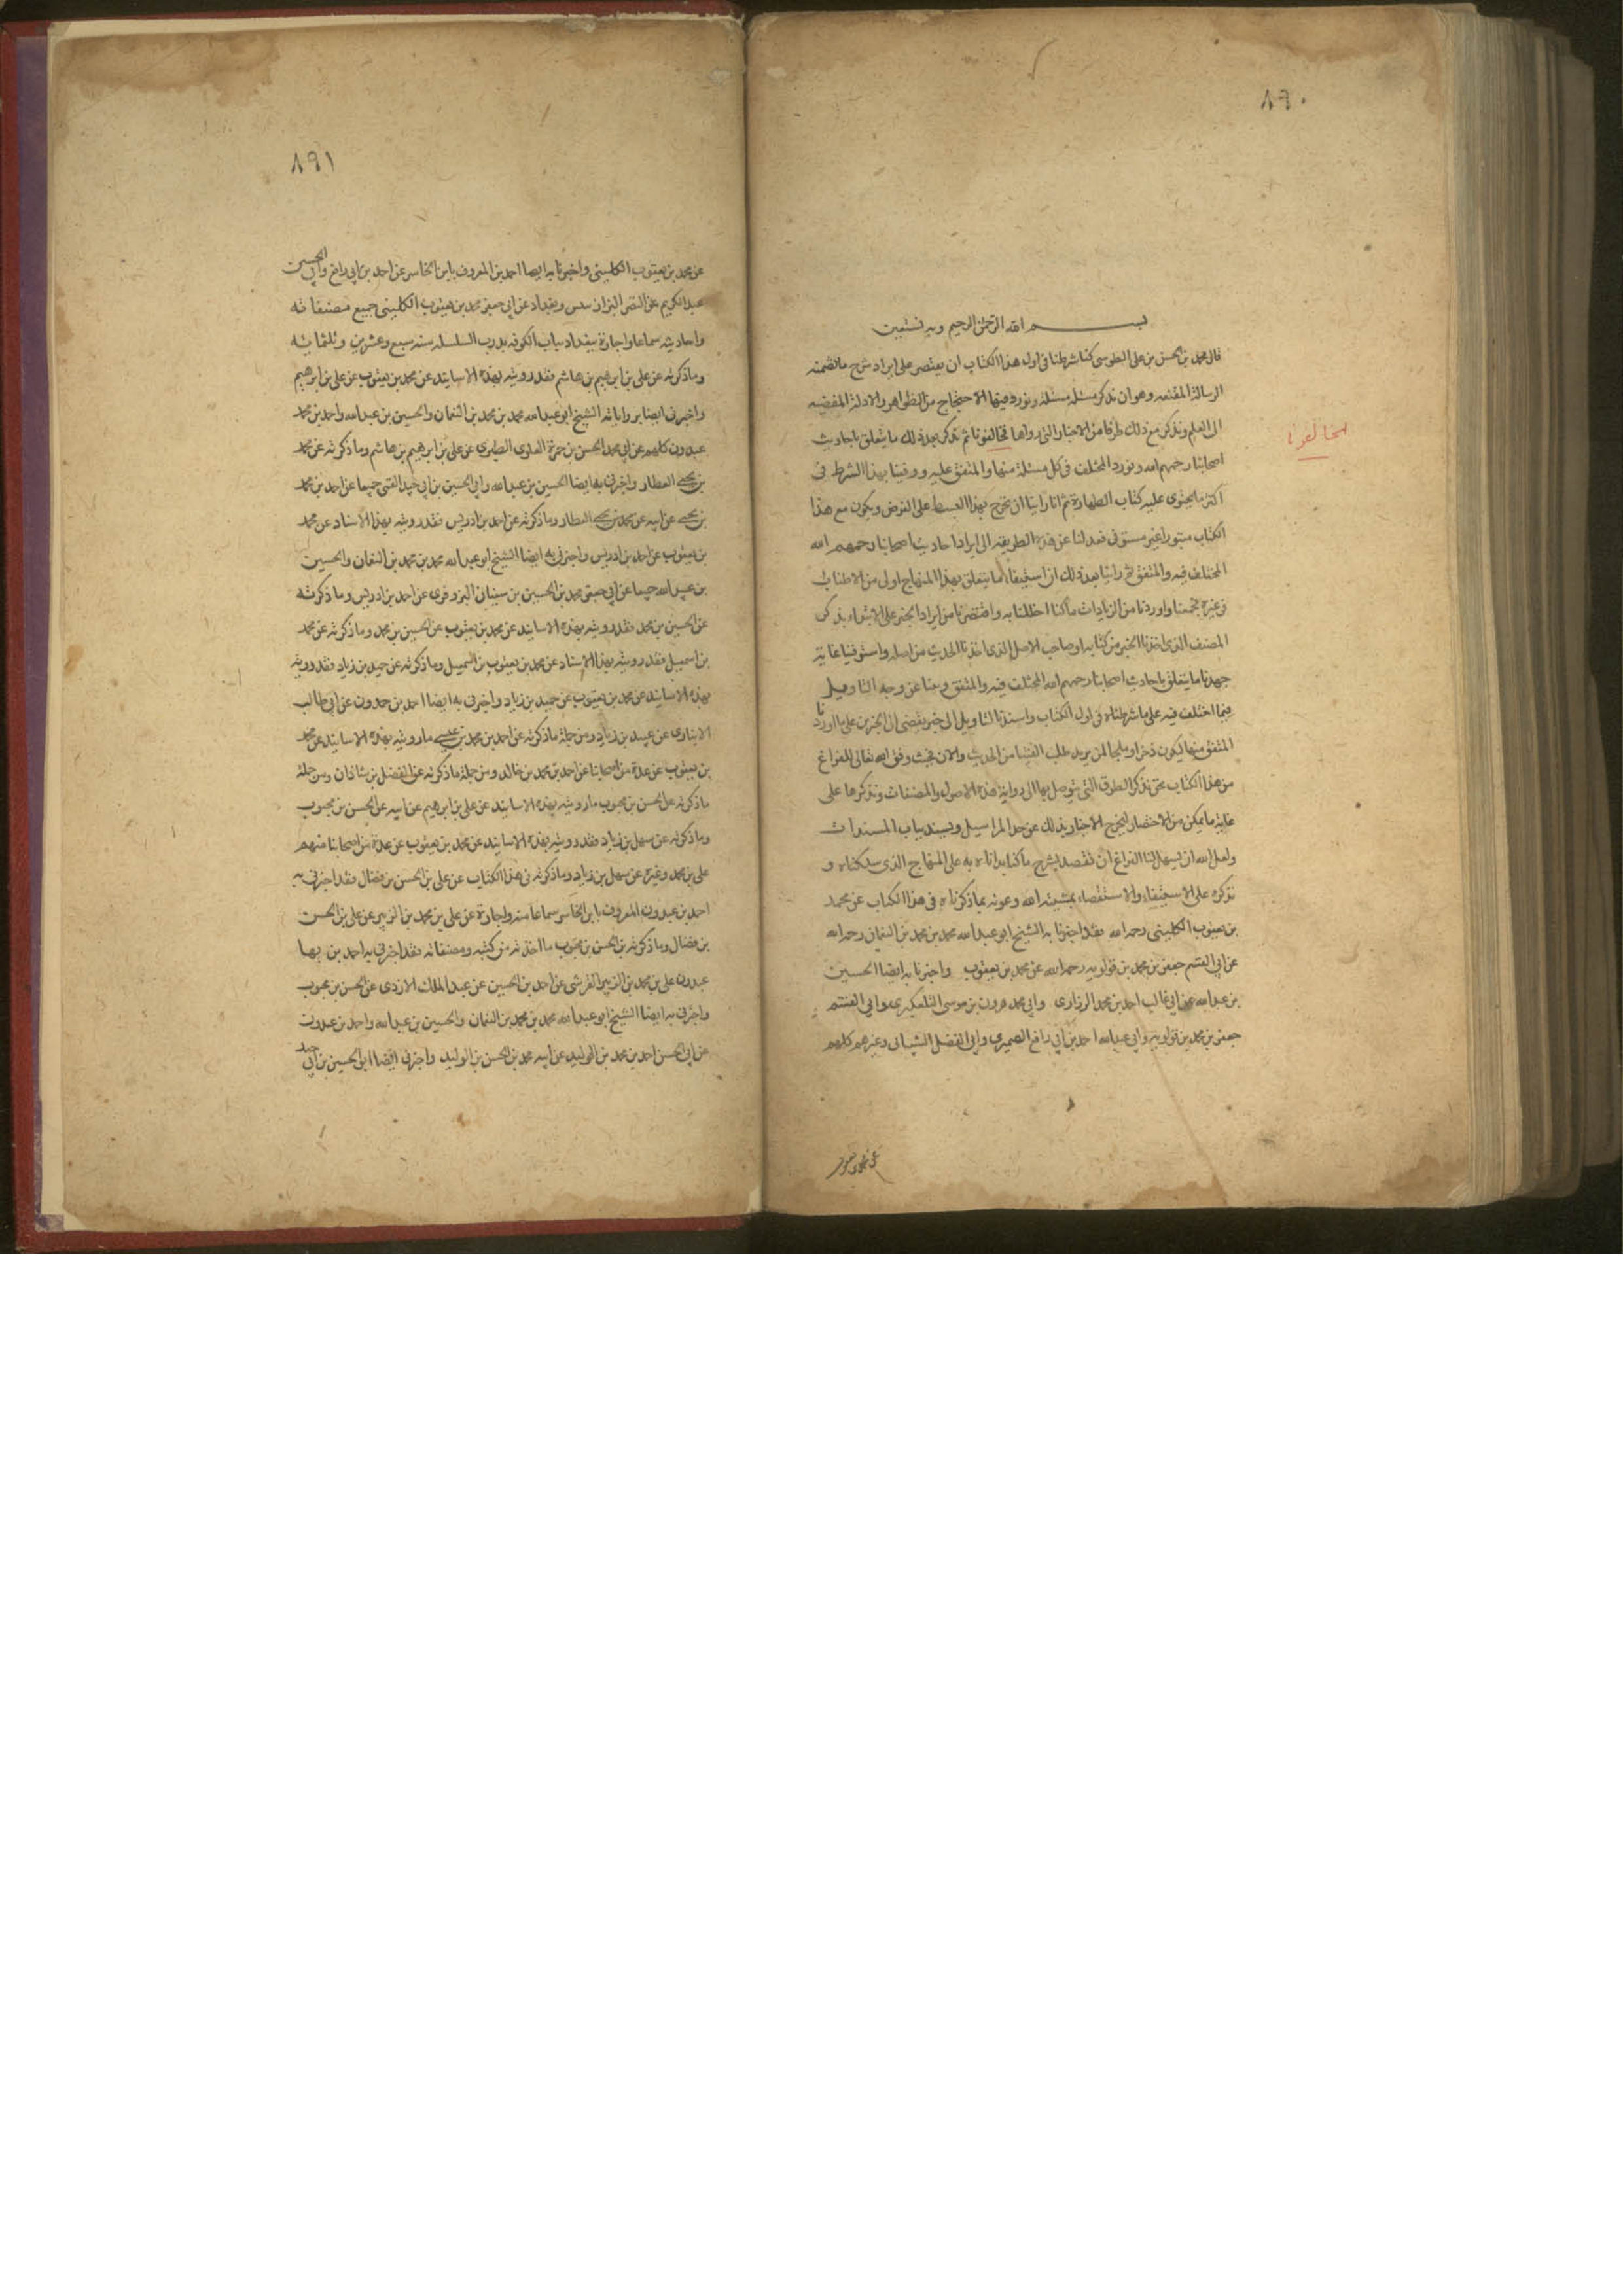 ٨٩٠
بسم الله الرحمن الرحيم وبه نستعين
قال محمد بن الحسن بن على الطوسى كنا شرطنا فى اول هذا الكتاب ان يقتصر على ايراد شرح ما تضمنه
الرسالة المقنعه وهو ان نذكر مسئله مسئله ونورد فيها الاحتجاج من الظواهر والادلة المفضيه
الى العلم ونذكر مع ذلك طرفا من الاخبار التى رواها مخالفونا ثم نذكر بعد ذلك ما يتعلق باحاديث
المخالفونا
اصحابنا رحمهم الله ونورد المختلف فى كل مسئلة منها والمتفق عليه ووفينا بهذا الشرط فى
اكثر ما يحتوى عليه كتاب الطهارة ثم انا راينا ان نخرج بهذا البسط على الغرض ويكون مع هذا
الكتاب مبتورا غير مستوفى فعدلنا عن هذه الطريقه الى ايراد احاديث اصحابنا رحمهم الله
المختلف فيه والمتفق ثم راينا بعد ذلك ان استيفاء ما يتعلق بهذا المنهاج اولى من الاطناب
فى غيره فجمعنا واوردنا من الزيادات ما كنا اخللنا به واقتصرنا من ايراد الخبر على الابتداء بذكر
المصنف الذى اخذنا الخبر من كتابه او صاحب الاصل الذى اخذنا الحديث من اصله واستوفينا غاية
جهدنا ما يتعلق باحاديث اصحابنا رحمهم الله المختلف فيه والمتفق وبينا عن وجه التاويل
فيما اختلف فيه على ما شرطناه فى اول الكتاب واسندنا التاويل الى خبر يقضى الى الخبرين على ما اوردنا
المتفق منها ليكون ذخرا وملجا لمن يريد طلب الفتيا من الحديث والان فحيث وفق الله تعالى للفراغ
من هذا الكتاب نحن نذكر الطرق التى يتوصل بها الى رواية هذه الاصول والمصنفات ونذكرها على
غاية ما يمكن من الاختصار لتخرج الاخبار بذلك عن حد المراسيل ويسند بباب المسندات
ولعل الله ان يسهل لنا الفراغ ان نقصد بشرح ما كنا بداناه به على المنهاج الذى سلكناه و
نذكره على الاستيفاء والاستقصاء بمشيئة الله وعونه بما ذكرناه فى هذا الكتاب عن محمد
بن يعقوب الكلينى رحمه الله فقد اخبرنا به الشيخ ابو عبد الله محمد بن محمد بن النعمان رحمه الله
عن ابى القسم جعفر بن محمد بن قولويه رحمه الله عن محمد بن يعقوب واخبرنا به ايضا الحسين
بن عبد الله عن ابى غالب احمد بن محمد الزرارى وابى محمد هرون بن موسى التلعكبرى وابى القسم
جعفر بن محمد بن قولويه وابى عبد الله احمد بن ابى رافع الصيمرى وابى الفضل الشيبانى وغيرهم كلهم
عن محمد بن يعقوب
٨٩١
عن محمد بن يعقوب الكلينى واخبرنا به ايضا احمد بن المعروف بابن الحاسر عن احمد بن ابى رافع وابى الحسين
عبد الكريم عن النصر البزاز بتنيس وبغداد عن ابى جعفر محمد بن يعقوب الكلينى جميع مصنفاته
واحاديثه سماعا واجازة ببغداد بباب الكوفه بدرب السلسله سنه سبع وعشرين وثلثمائه
وما ذكرته عن على بن ابرهيم بن هاشم فقد رويته بهذه الاسانيد عن محمد بن يعقوب عن على بن ابرهيم
واخبرنى ايضا برواياته الشيخ ابو عبد الله محمد بن محمد بن النعمان والحسين بن عبد الله واحمد بن محمد
عبدون كلهم عن ابى محمد الحسن بن حمزة العلوى الطبرى عن على بن ابرهيم بن هاشم وما ذكرته عن محمد
بن يحيى العطار واخبرنى به ايضا الحسين بن عبد الله وابى الحسين بن ابى جيد القمى جميعا عن احمد بن محمد
بن يحيى عن ابيه عن محمد بن يحيى العطار وما ذكرته عن احمد بن ادريس فقد رويته بهذا الاسناد عن محمد
بن يعقوب عن احمد بن ادريس واخبرنى به ايضا الشيخ ابو عبد الله محمد بن محمد بن النعمان والحسين
بن عبيد الله جميعا عن ابى جعفر محمد بن الحسين بن سفيان البزوفرى عن احمد بن ادريس وما ذكرته
عن الحسين بن محمد فقد رويته بهذه الاسانيد عن محمد بن يعقوب عن الحسين بن محمد وما ذكرته عن محمد
بن اسمعيل فقد رويته بهذا الاسناد عن محمد بن يعقوب بن اسمعيل وما ذكرته عن حميد بن زياد فقد رويته
بهذه الاسانيد عن محمد بن يعقوب عن حميد بن زياد واخبرنى به ايضا احمد بن حمدون عن ابى طالب
الانبارى عن عبيد بن زياد ومن جملة ما ذكرته عن احمد بن محمد بن عيسى ما رويته بهذه الاسانيد عن محمد
بن يعقوب عن عدة من اصحابنا عن احمد بن محمد بن خالد ومن جملة ما ذكرته عن الفضل بن شاذان ومن جملة
ما ذكرته عن الحسن بن محبوب ما رويته بهذه الاسانيد عن على بن ابرهيم عن ابيه عن الحسن بن محبوب
وما ذكرته عن سهل بن زياد فقد رويته بهذه الاسانيد عن محمد بن يعقوب عن عدة من اصحابنا منهم
على بن محمد وغيره عن سهل بن زياد وما ذكرته فى هذا الكتاب عن على بن الحسن بن فضال فقد اخبرنى به
احمد بن عبدون المعروف بابن الحاسر سماعا منه واجازة عن على بن محمد بن الزبير عن على بن الحسن
بن فضال وما ذكرته بن الحسن بن محبوب ما اخذته من كتبه ومصنفاته فقد اخبرنى به احمد بن بها
عبدون على بن محمد بن الزبير القرشى عن احمد بن الحسين عن عبد الملك الازدى عن الحسن بن محبوب
واخبرنى به ايضا الشيخ ابو عبد الله محمد بن محمد بن النعمان والحسين بن عبد الله واحمد بن عبدون
عن ابى الحسن احمد بن محمد بن الوليد عن ابيه محمد بن الحسن بن الوليد واخبرنى ايضا ابو الحسين بن ابى جيد